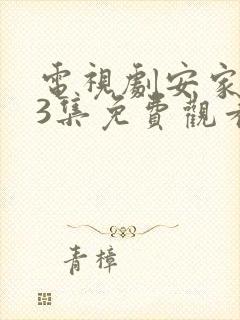 電視劇安家
3集免費觀看
青樟